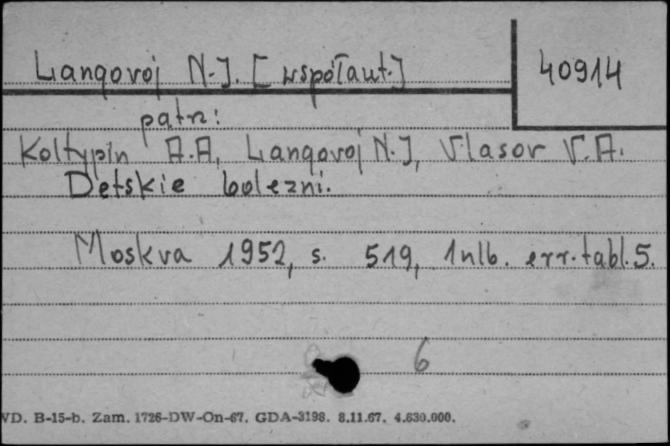 Langovoj N.J. [współaut.]
40914
patrz:
Koltypin A.A, Langovoj N.J, Vlasov V.A.
Detskie bolezni.
Moskva 1952, s. 519, 1nlb. err. tabl. 5.
6
WD. B-15-b. Zam. 1726-DW-On-67. GDA-3198. 8.11.67. 4.630.000.